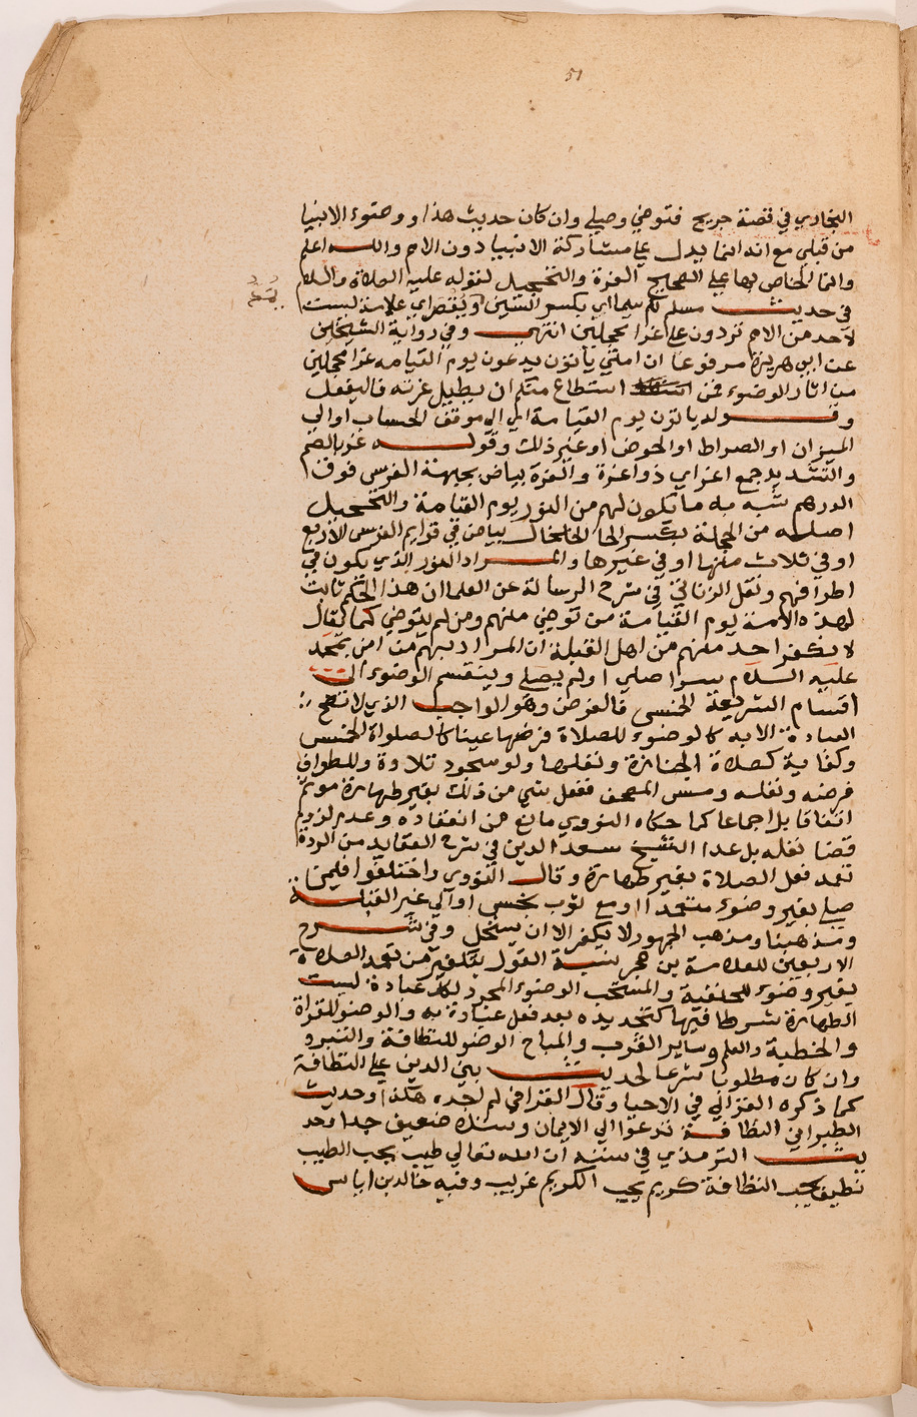 51
البخاري في قصة جريج فتوضي وصلي وان كان حديث هذا ووضوء الانبيا
من قبلي مع انه انما يدل علي مشاركة الانبيا دون الامم والله اعلم
وانما الخاص بها علي الصحيح الغرة والتحجيل لقوله عليه الصلاة والسلام
في حديث مسلم لكم سيما اي بكسر السين ويقصر اي علامة ليست
لاحد من الامم تردون علي غرا محجلين انتهي وفي رواية الشيخين
عن ابي هريرة مرفوعا ان امتي يأتون يدعون يوم القيامه غرا محجلين
من اثار الوضوء فمن استطاع منكم ان يطيل غرته فاليفعل
وقوله ياتون يوم القيامة اي الي موقف الحساب او الي
الميزان او الصراط او الحوض او غير ذلك وقوله غر بالضم
والتشديد جمع اغر اي ذو اغرة والغرة بياض بجبهة الفرس فوق
الدرهم شبه به ما يكون لهم من النور يوم القيامة والتحجيل
اصله من الحجلة بكسر الحا الخلخال بياض في قوايم الفرس الاربع
او في ثلاث منها او في غيرها والمراد النور الذي يكون في
اطرافهم ونقل الزناتي في شرح الرسالة عن العلما ان هذا الحكم ثابت
لهذه الامة يوم القيامة من توضي منهم ومن لم يتوضي كما يقال
لا يكفر احد منهم من اهل القبلة ان المراد بهم من امن بمحمد
عليه السلام سوا صلي او لم يصلي وينقسم الوضوء الي
اقسام الشريعة الخمس فالفرض وهو الواجب الذي لا تصح
العبادة الا به كالوضوء للصلاة فرضها عينا كالصلواة الخمس
وكفاية كصلاة الجنازة ونفلها ولو سجود تلاوة وللطواف
فرضه ونفله ومس المصحف ففعل شي من ذلك بغير طهارة موثم
اتفاقا بل اجماعا كما حكاه النووي مانع من انعقاده وعدم لزوم
قضا نفله بل عدا الشيخ سعد الدين في شرح العقايد من الردة
تعمد فعل الصلاة بغير طهارة وقال النووي واختلفوا فيمن
صلي بغير وضوء متعمدا او مع ثوب نجس او الي غير القبلة
ومذهبنا ومذهب الجمهور لا يكفر الا ان يستحل وفي شرح
الاربعين للعلامة بن حجر نسبة القول بتكفير من تعمد الصلاة
بغير وضوء للحنفية والمستحب الوضوء المجرد لكل عبادة ليست
الطهارة شرطا فيها كتجديده بعد فعل عبادة به والوضو للقراة
والخطبة والعلم وساير القرب والمباح الوضو للنظافة والتبرد
وان كان مطلوبا شرعا لحديث بني الدين علي النظافة
كما ذكره الغزالي في الاحيا وقال العراقي لم اجده هكذا وحديث
الطبراني النظافة تدعوا الي الايمان وسنده ضعيف جدا وحد
يث الترمذي في سننه ان الله تعالي طيب يحب الطيب
نظيف يحب النظافة كريم يحب الكريم غريب وفيه خالد بن اياس